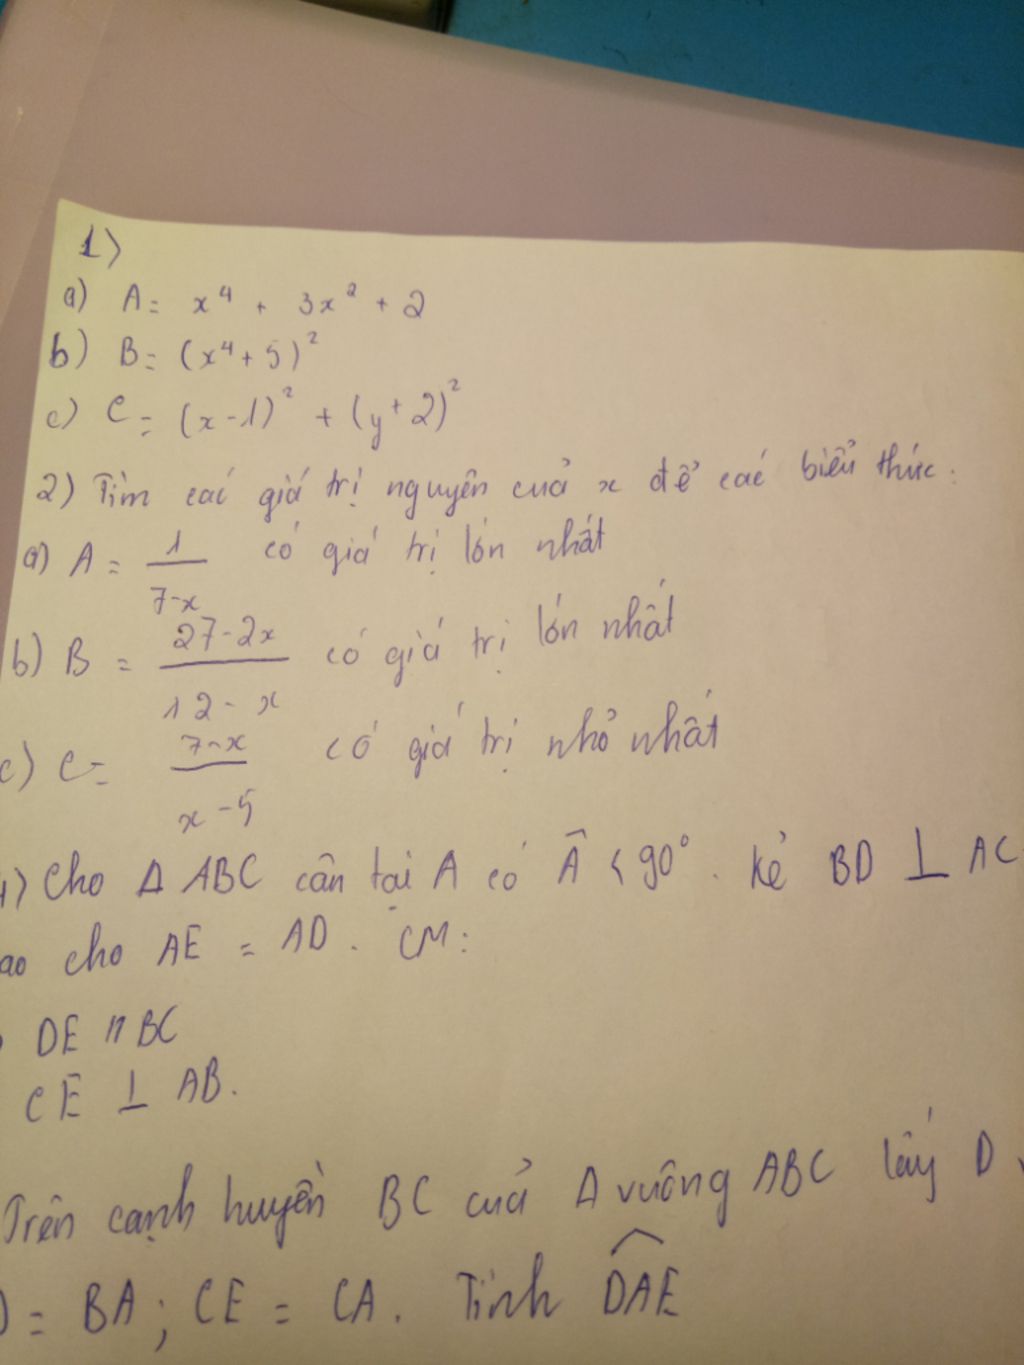 1)
a) A = x⁴ + 3x² + 2
b) B = (x⁴ + 5)²
c) C = (x - 1)² + (y + 2)²
2) Tìm các giá trị nguyên của x để các biểu thức:
a) A = 1/(7-x) có giá trị lớn nhất
b) B = (27-2x)/(12-x) có giá trị lớn nhất
c) C = (7-x)/(x-5) có giá trị nhỏ nhất
) Cho Δ ABC cân tại A có Â < 90°. Kẻ BD ⊥ AC
ao cho AE = AD. CM:
DE // BC
CE ⊥ AB.
Trên cạnh huyền BC của Δ vuông ABC lấy D
= BA; CE = CA. Tính DAE